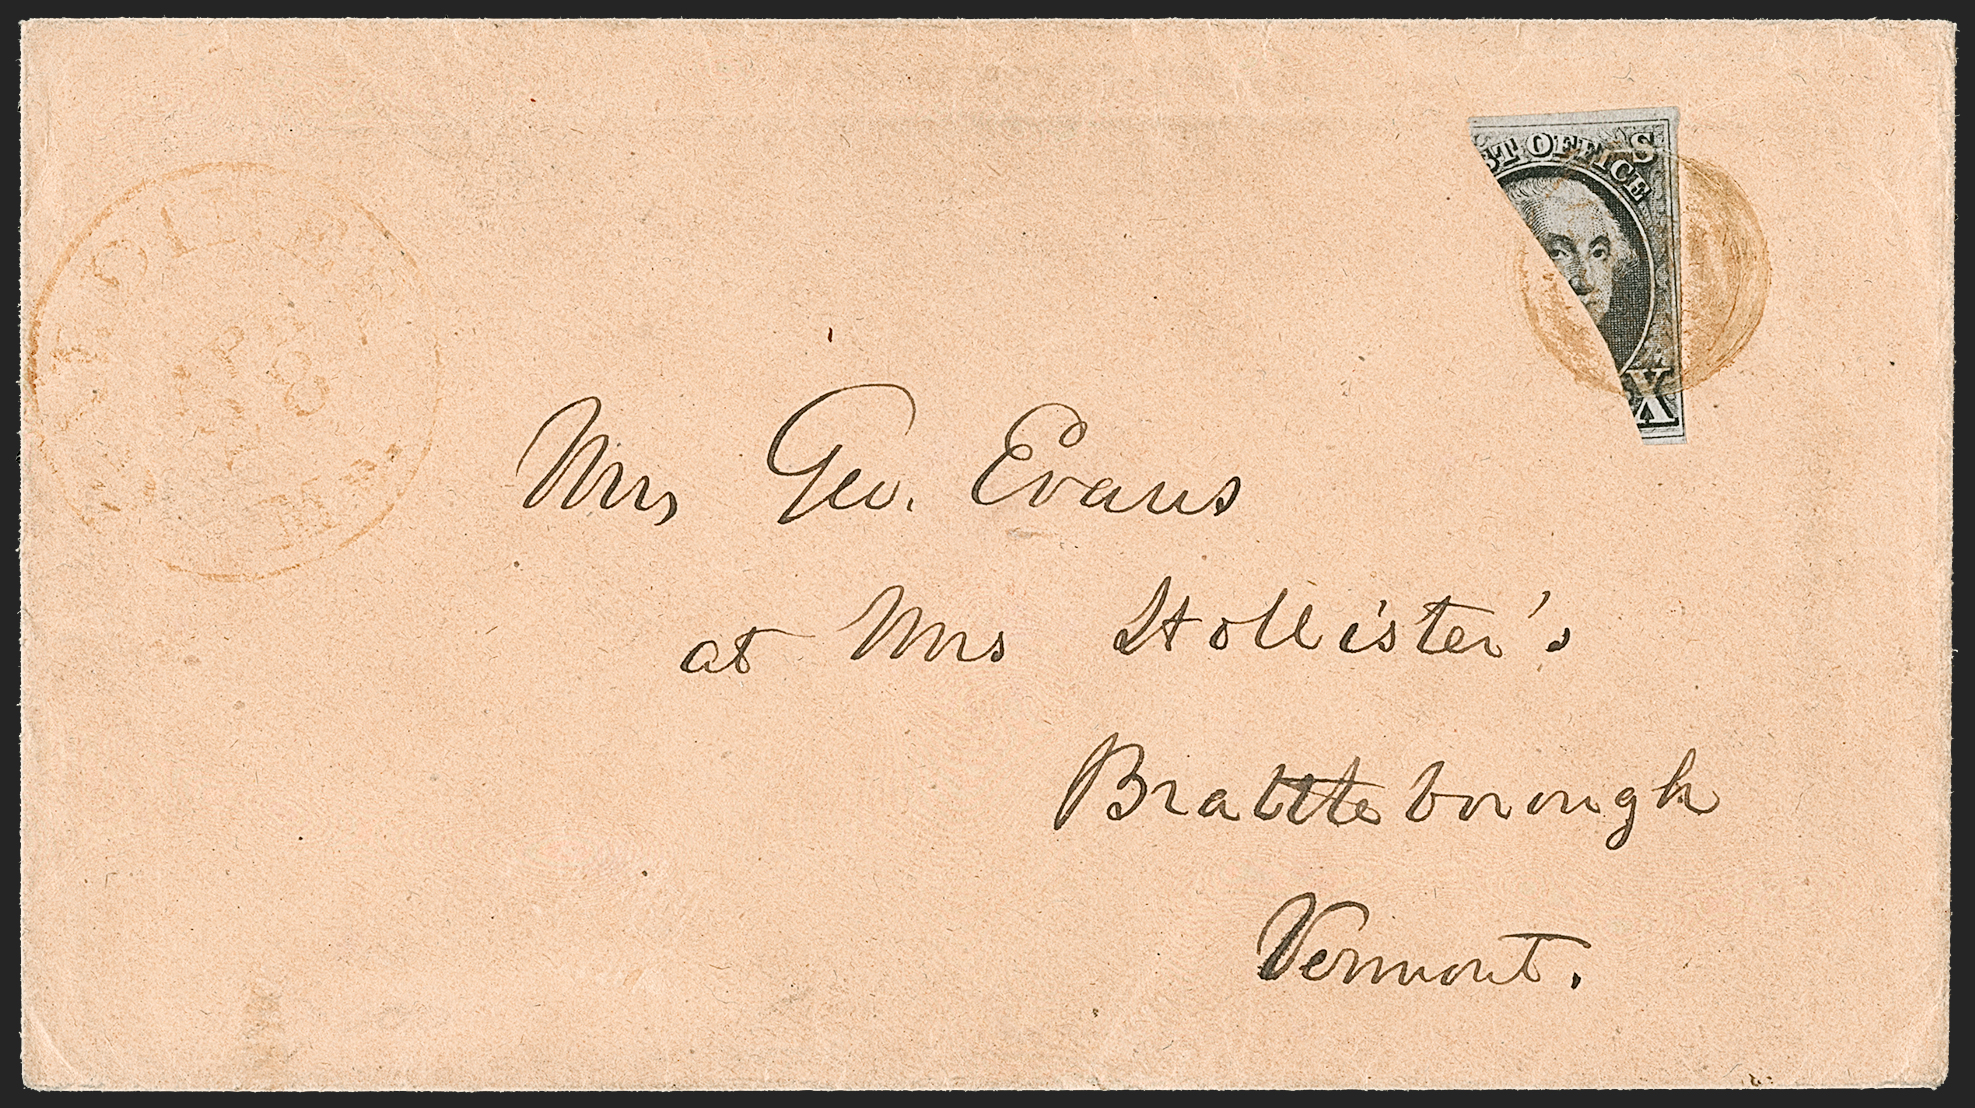 ST OFFICE
S
X
X
Mrs Geo. Evans
at Mrs Hollister's
Brattleborough
Vermont.